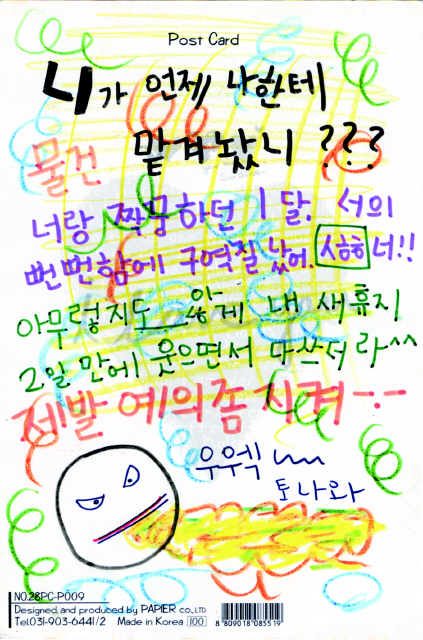 Post Card
니가 언제 나한테
물건 맡겨놨니 ???
너랑 짝궁하던 1달. 너의
뻔뻔함에 구역질 났어. 너!!
아무렇지도 않게 내 새휴지
2일 만에 웃으면서 다쓰더라^^
제발 예의좀 지켜 --
우웩
토나와
NO.28PC-P009
Designed and produced by PAPIER co.,LTD
Tel.031-903-6441/2 Made in Korea 100
8 809018 085519